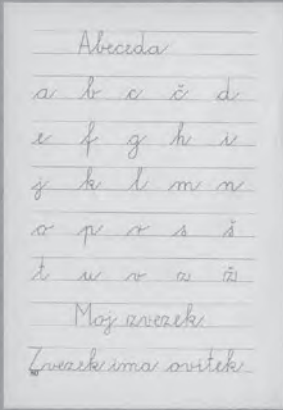 Abeceda
a b c č d
e f g h i
j k l m n
o p r s š
t u v z ž
Moj zvezek
Zvezek ima ovitek